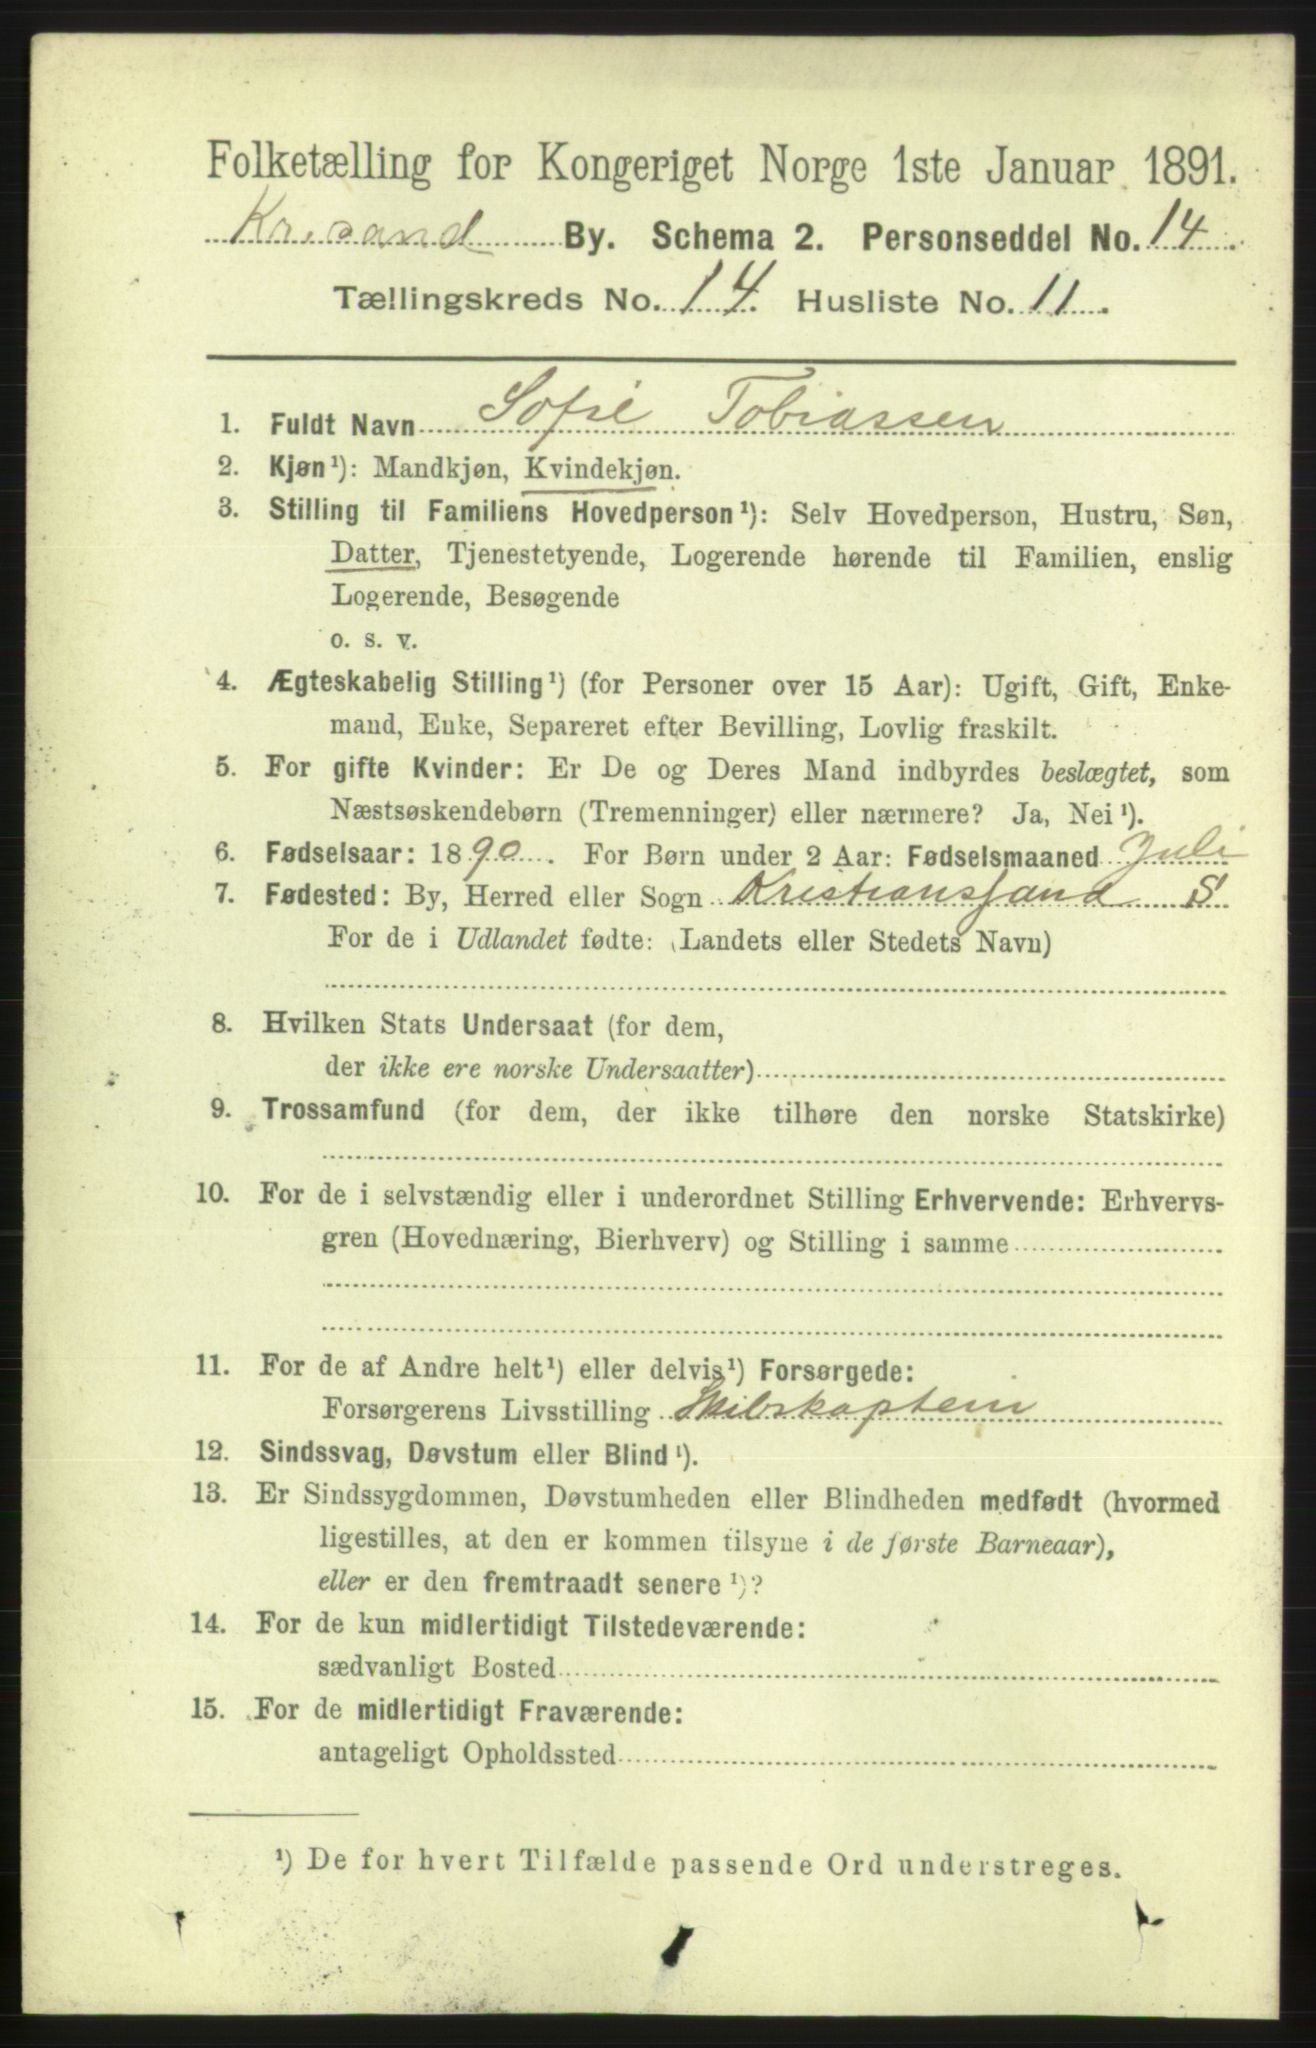 Folketælling for Kongeriget Norge 1ste Januar 1891.
Kr.sand By. Schema 2. Personseddel No. 14.
Tællingskreds No. 14. Husliste No. 11.
1. Fuldt Navn Sofie Tobiassen
2. Kjøn¹): Mandkjøn, Kvindekjøn.
3. Stilling til Familiens Hovedperson¹): Selv Hovedperson, Hustru, Søn,
Datter, Tjenestetyende, Logerende hørende til Familien, enslig
Logerende, Besøgende
o. s. v.
4. Ægteskabelig Stilling¹) (for Personer over 15 Aar): Ugift, Gift, Enke-
mand, Enke, Separeret efter Bevilling, Lovlig fraskilt.
5. For gifte Kvinder: Er De og Deres Mand indbyrdes beslægtet, som
Næstsøskendebørn (Tremenninger) eller nærmere? Ja, Nei¹).
6. Fødselsaar: 1890. For Børn under 2 Aar: Fødselsmaaned Juli
7. Fødested: By, Herred eller Sogn Kristianssand S
For de i Udlandet fødte: (Landets eller Stedets Navn)
8. Hvilken Stats Undersaat (for dem,
der ikke ere norske Undersaatter)
9. Trossamfund (for dem, der ikke tilhøre den norske Statskirke)
10. For de i selvstændig eller i underordnet Stilling Erhvervende: Erhvervs-
gren (Hovednæring, Bierhverv) og Stilling i samme
11. For de af Andre helt¹) eller delvis¹) Forsørgede:
Forsørgerens Livsstilling Skibskaptein
12. Sindssvag, Døvstum eller Blind¹).
13. Er Sindssygdommen, Døvstumheden eller Blindheden medfødt (hvormed
ligestilles, at den er kommen tilsyne i de første Barneaar),
eller er den fremtraadt senere¹)?
14. For de kun midlertidigt Tilstedeværende:
sædvanligt Bosted
15. For de midlertidigt Fraværende:
antageligt Opholdssted
¹) De for hvert Tilfælde passende Ord understreges.